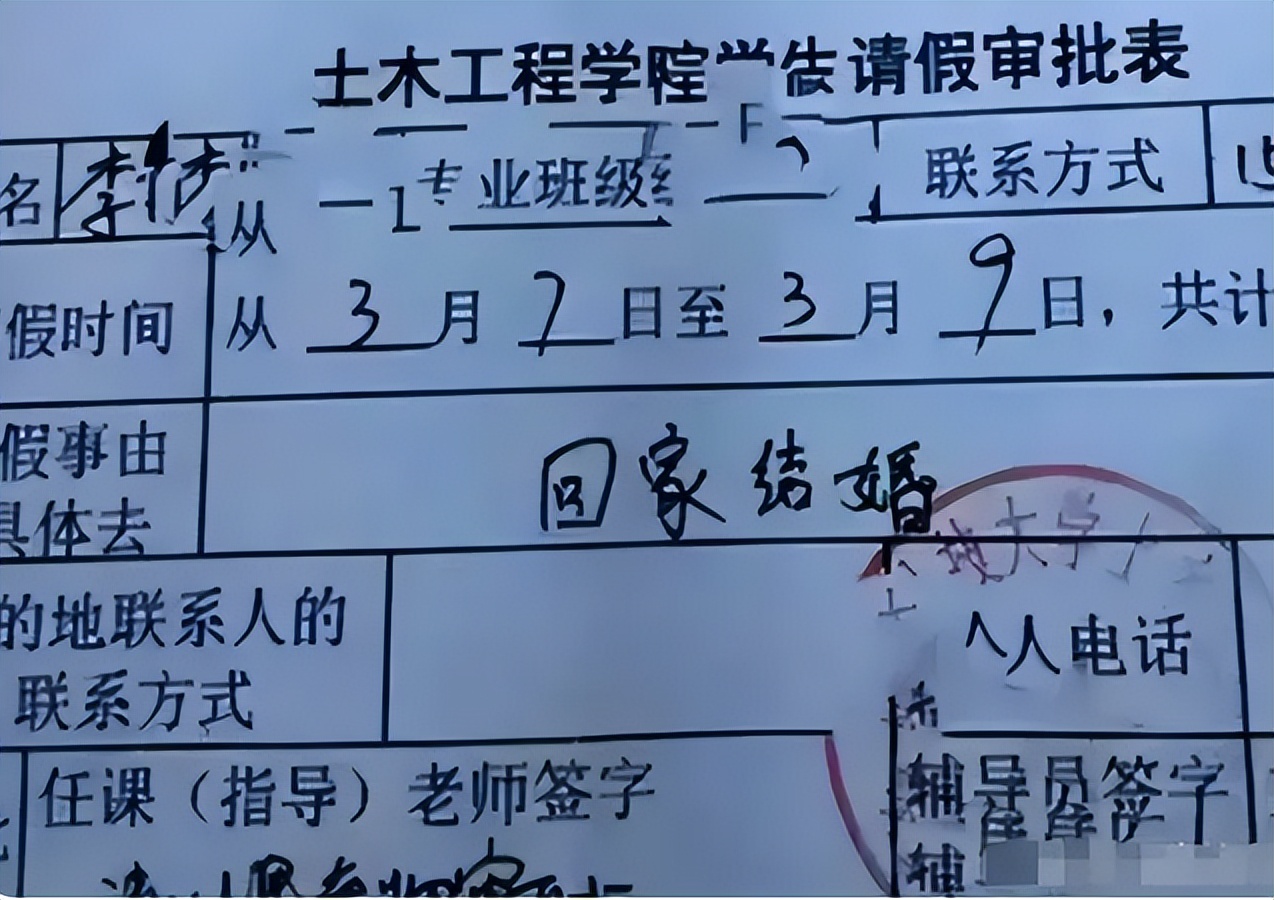 土木工程学院学生请假审批表
名 李 专业班级 联系方式
从
假时间 从 3 月 7 日至 3 月 9 日，共计
假事由 回家结婚
具体去
大学
的地联系人的 人电话
联系方式
任课（指导）老师签字 辅导员签字
辅